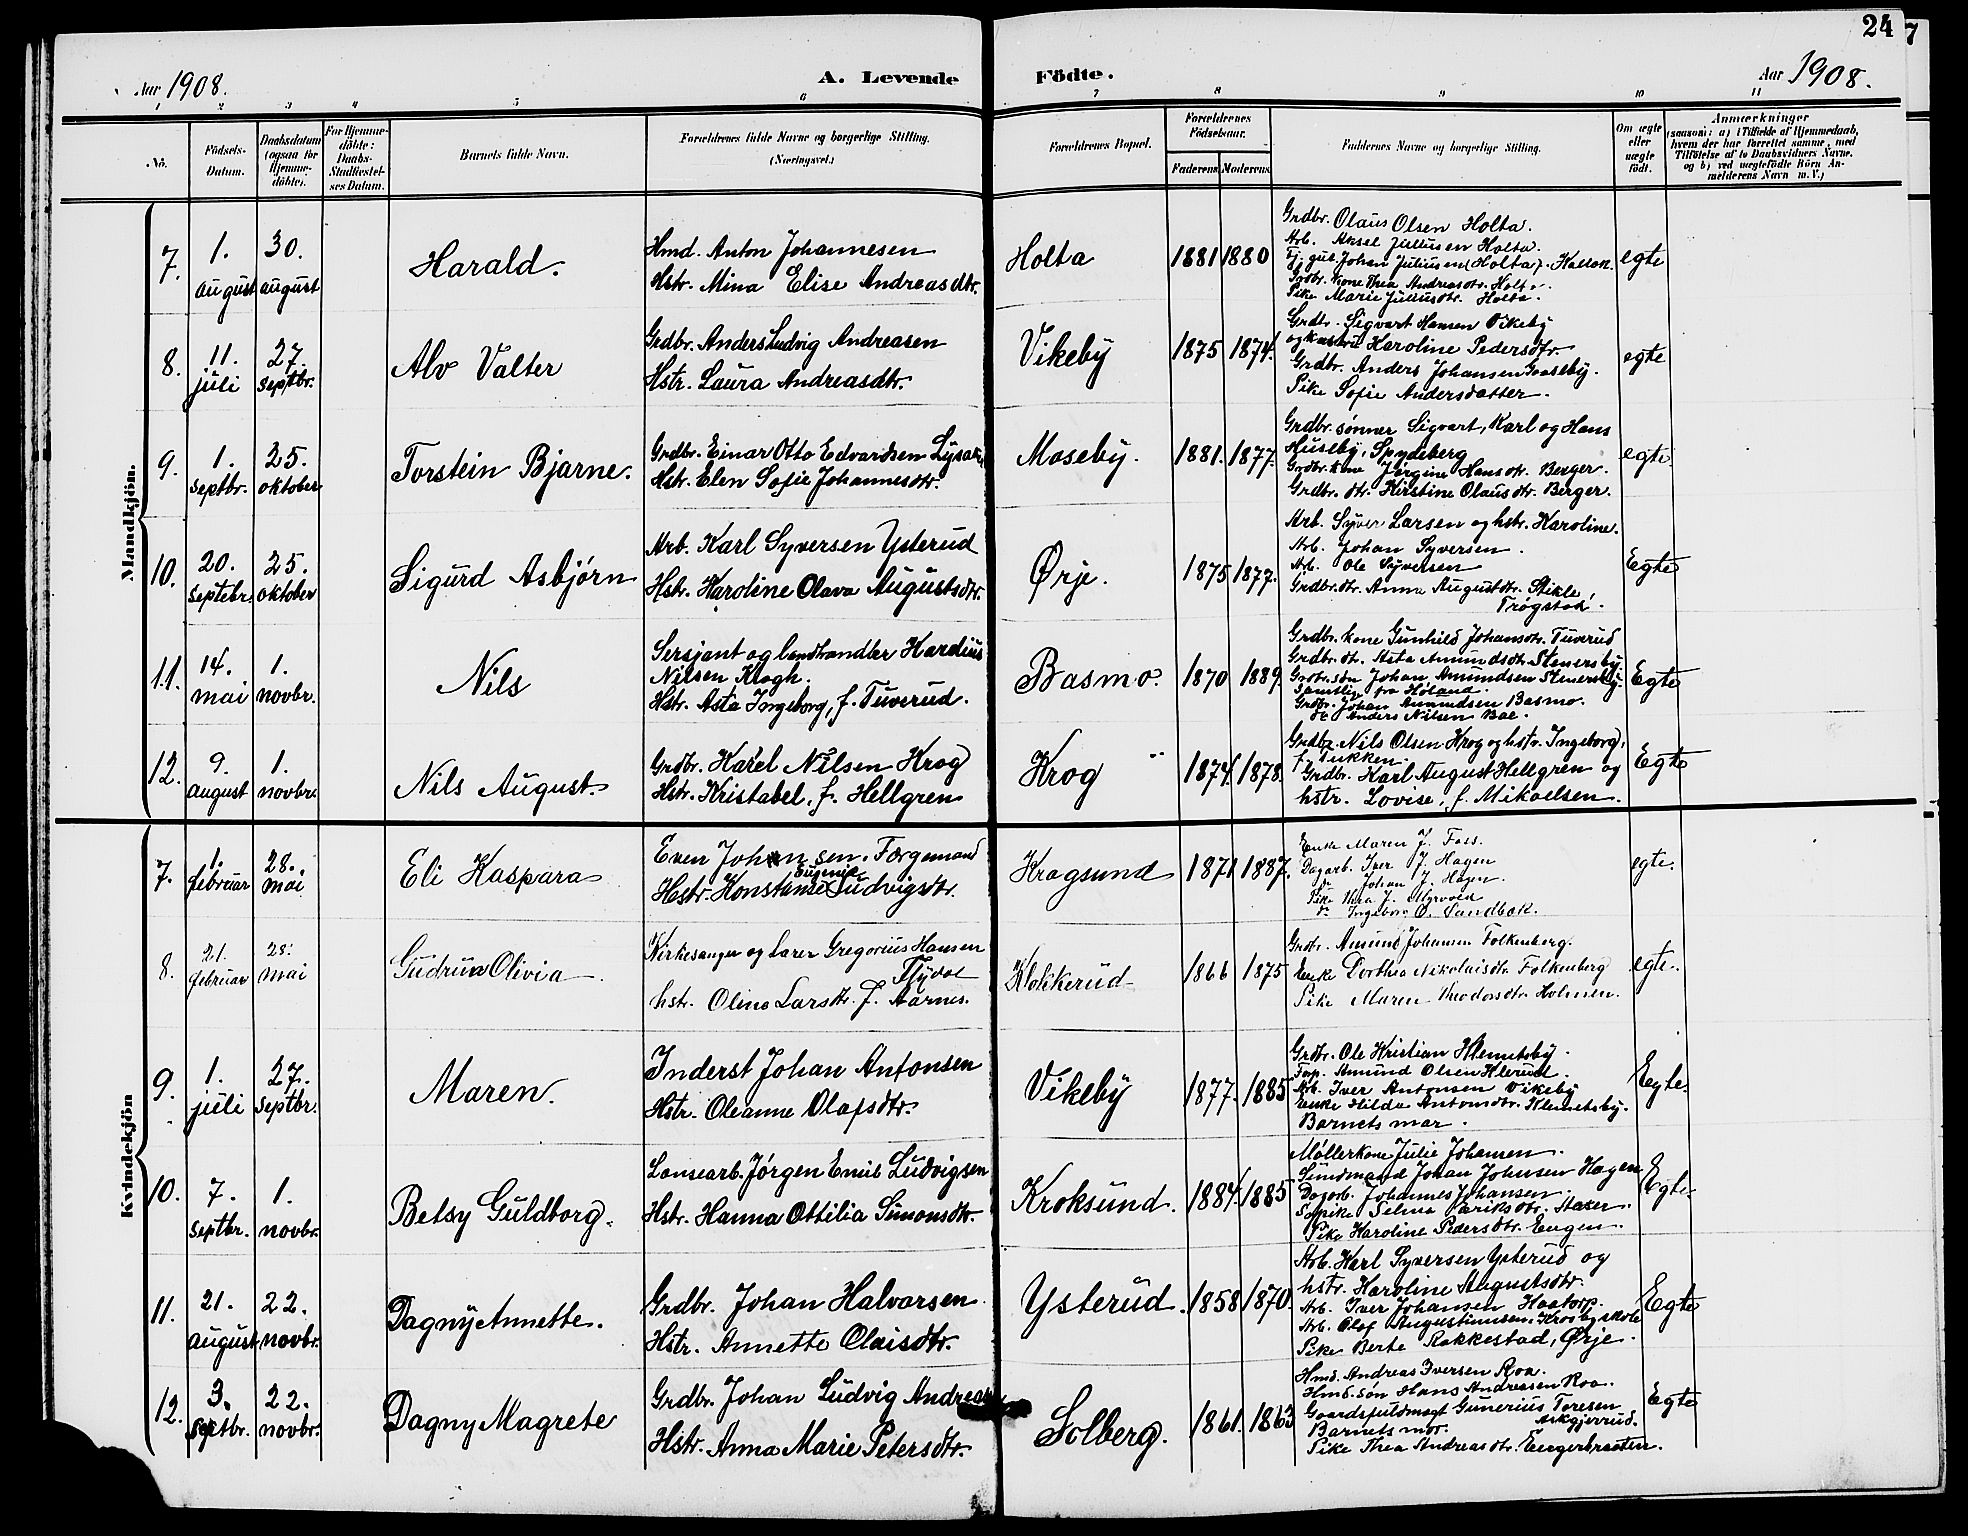 24
7
Aar 1908.
A. Levende
Födte.
Aar 1908.
1 2 3 4 5 6 7 8 9 10 11
No.
Födsels-
Datum.
Daabsdatum
(ogsaa for
Hjemme-
döbte).
For Hjemme-
döbte:
Daabs-
Stadfæstel-
ses Datum.
Barnets fulde Navn.
Forældrenes fulde Navne og borgerlige Stilling.
(Næringsvei.)
Forældrenes Bopæl.
Forældrenes
Födselsaar.
Faderens
Moderens
Faddernes Navne og borgerlige Stilling.
Om ægte
eller
uægte
födt.
Anmærkninger
(saasom: a) i Tilfælde af Hjemmedaab,
hvem der har forrettet samme, med
Tilföielse af to Daabsvidners Navne.
og b) ved uægtefödte Börn An-
melderens Navn m. V.)
Mandkjön.
7.
1.
august
30.
august
Harald.
Hmd. Anton Johannesen
Hstr. Mina Elise Andreasdtr.
Holta
1881
1880
Grdbr. Olaus Olsen Holta.
Arb. Aksel Juliusen Holta.
Johan Juliusen (Holta)
Grdbr. kone Thea Andreasdtr. Holta.
Pike Marie Juliusdtr. Holta.
egte
8.
11.
juli
27.
septbr.
Alv Valter
Grdbr. Anders Ludvig Andreasen
Hstr. Laura Andreasdtr.
Vikeby
1875
1874.
Grdbr. Sigvart Hansen Vikeby
og hustru Karoline Pedersdtr.
Grdbr. Anders Johansen Gaaseby.
Pike Sofie Andersdatter.
egte
9.
1.
septbr.
25.
oktober
Torstein Bjarne.
Grdbr. Einar Otto Edvardsen Lysaker
Hstr. Elen Sofie Johannesdtr.
Moseby.
1881.
1877.
Grdbr. sønner Sigvart, Karl og Hans
Huseby, Spydeberg
Grdbr. kone Jørgine Hansdtr. Berger.
Grdbr. dtr. Kirstine Olausdtr. Berger.
egte.
10.
20.
septebr.
25.
oktober
Sigurd Asbjørn
Arb. Karl Syversen Ysterud
Hstr. Karoline Olava Augustsdtr.
Ørje.
1875
1877.
Arb. Syver Larsen og hstr. Karoline.
Arb. Johan Syversen.
Arb. Ole Syversen
Grdbr. dtr. Anna Augustdtr. Stikle,
Trøgstad.
Egte
11.
14.
mai
1.
novbr.
Nils
Sersjant og landhandler Hardius
Nilsen Krogh.
Hstr. Asta Ingeborg, f. Tuverud.
Basmo.
1870
1889.
Grdbr. kone Gunhild Johansdtr. Tuverud
Grdbr. dtr. Asta Amundsdtr. Stenersby.
Grdbr. søn Johan Amundsen Stenersby.
Samtlige fra Høland.
Grdbr. Johan Amundsen Basmo.
do Anders Nilsen Bøe.
Egte
12.
9.
august
1.
novbr.
Nils August.
Grdbr. Karel Nilsen Krog
Hstr. Kristabel, f. Hellgren
Krog
1874.
1878.
Grdbr. Nils Olsen Krog og hstr. Ingeborg,
f. Tukken.
Grdbr. Karl August Hellgren og
hstr. Lovise, f. Mikaelsen.
Egte
Kvindekjön
7.
1.
februar
28.
mai
Eli Kaspara
Even Johansen. Færgemand
Eugenie
Hstr. Konstanse Ludvigsdtr.
Krogsund
1871
1887.
Enke Maren J. Foss.
Dagarb. Iver J. Hagen
do Johan J. Hagen.
Pike Thea J. Myrvold
do Ingeborg O. Sandbæk.
egte.
8.
21.
februar
28.
mai
Gudrun Olivia
Kirkesanger og Lærer Gregorius Hansen
hstr. Oline Larsdtr. f. Aarnes.
Klokkerud
1866
1875
Grdbr. Amund Johansen Folkenborg.
Enke Dorthea Nikolaisdtr. Folkenborg
Pike Maren Theodorsdtr. Holmen.
egte.
9.
1.
juli
27.
septbr.
Maren.
Inderst Johan Antonsen
Hstr. Oleanne Olafsdtr.
Vikeby
1877.
1885
Grdbr. Ole Kristian Klemetsby.
Amund Olsen Hlerud.
Arb. Iver Antonsen Vikeby
Enke Hilda Antonsdtr. Klemetsby.
Barnets mor.
Egte.
10.
7.
septbr.
1.
novbr.
Betsy Guldborg.
Lensearb. Jørgen Emil Ludvigsen
Hstr. Hanna Ottilia Simonsdtr.
Kroksund.
1884.
1885
Møllerkone Julie Johansen.
Sundmand Johan Johnsen Hagen
Dagarb. Johannes Johansen.
Pike Karoline Pedersdtr. Engen.
Egte.
11.
21.
august
22.
novbr.
Dagny Annette.
Grdbr. Johan Halvorsen
Hstr. Annette Olaisdtr.
Ysterud.
1858
1870.
Arb. Karl Syversen Ysterud og
hstr. Karoline Augustsdtr.
Arb. Iver Johansen Haatorp.
Arb. Olof Augustinusen, Krosby skole
Pike Berte Rakkestad, Ørje.
Egte
12.
3.
septbr.
22.
novbr.
Dagny Magrete
Grdbr. Johan Ludvig Andreas
Hstr. Anna Marie Petersdtr.
Solberg.
1861.
1863
Hmd. Andreas Iversen Roa.
Hmd. søn Hans Andreasen Roa.
Gaardsfuldmægt. Gunerius Toresen
Askjerrud.
Barnets mor.
Pike Thea Andreasdtr. Engerbraaten.
Egte